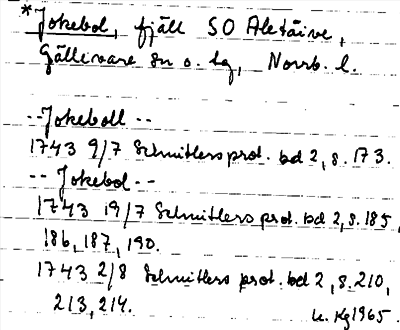 *Jokebol, fjäll SO Aletäive,
Gällivare sn o. lg, Norrb. l.
--Jokeboll--
1743 9/7 Schnitlers prot. bd 2, s. 173.
-- Jokebol --
1743 19/7 Schnitlers prot. bd 2, s. 185,
186, 187, 190.
1743 2/8 Schnitlers prot. bd 2, s. 210,
213, 214.
u. Kg 1965